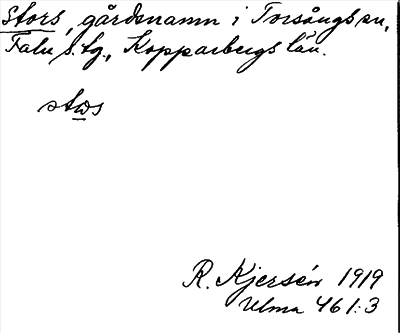 Stors, gårdsnamn i Torsångs sn,
Falu s. tg., Kopparbergs län.
stωs
R. Kjersén 1919
Ulma 461:3